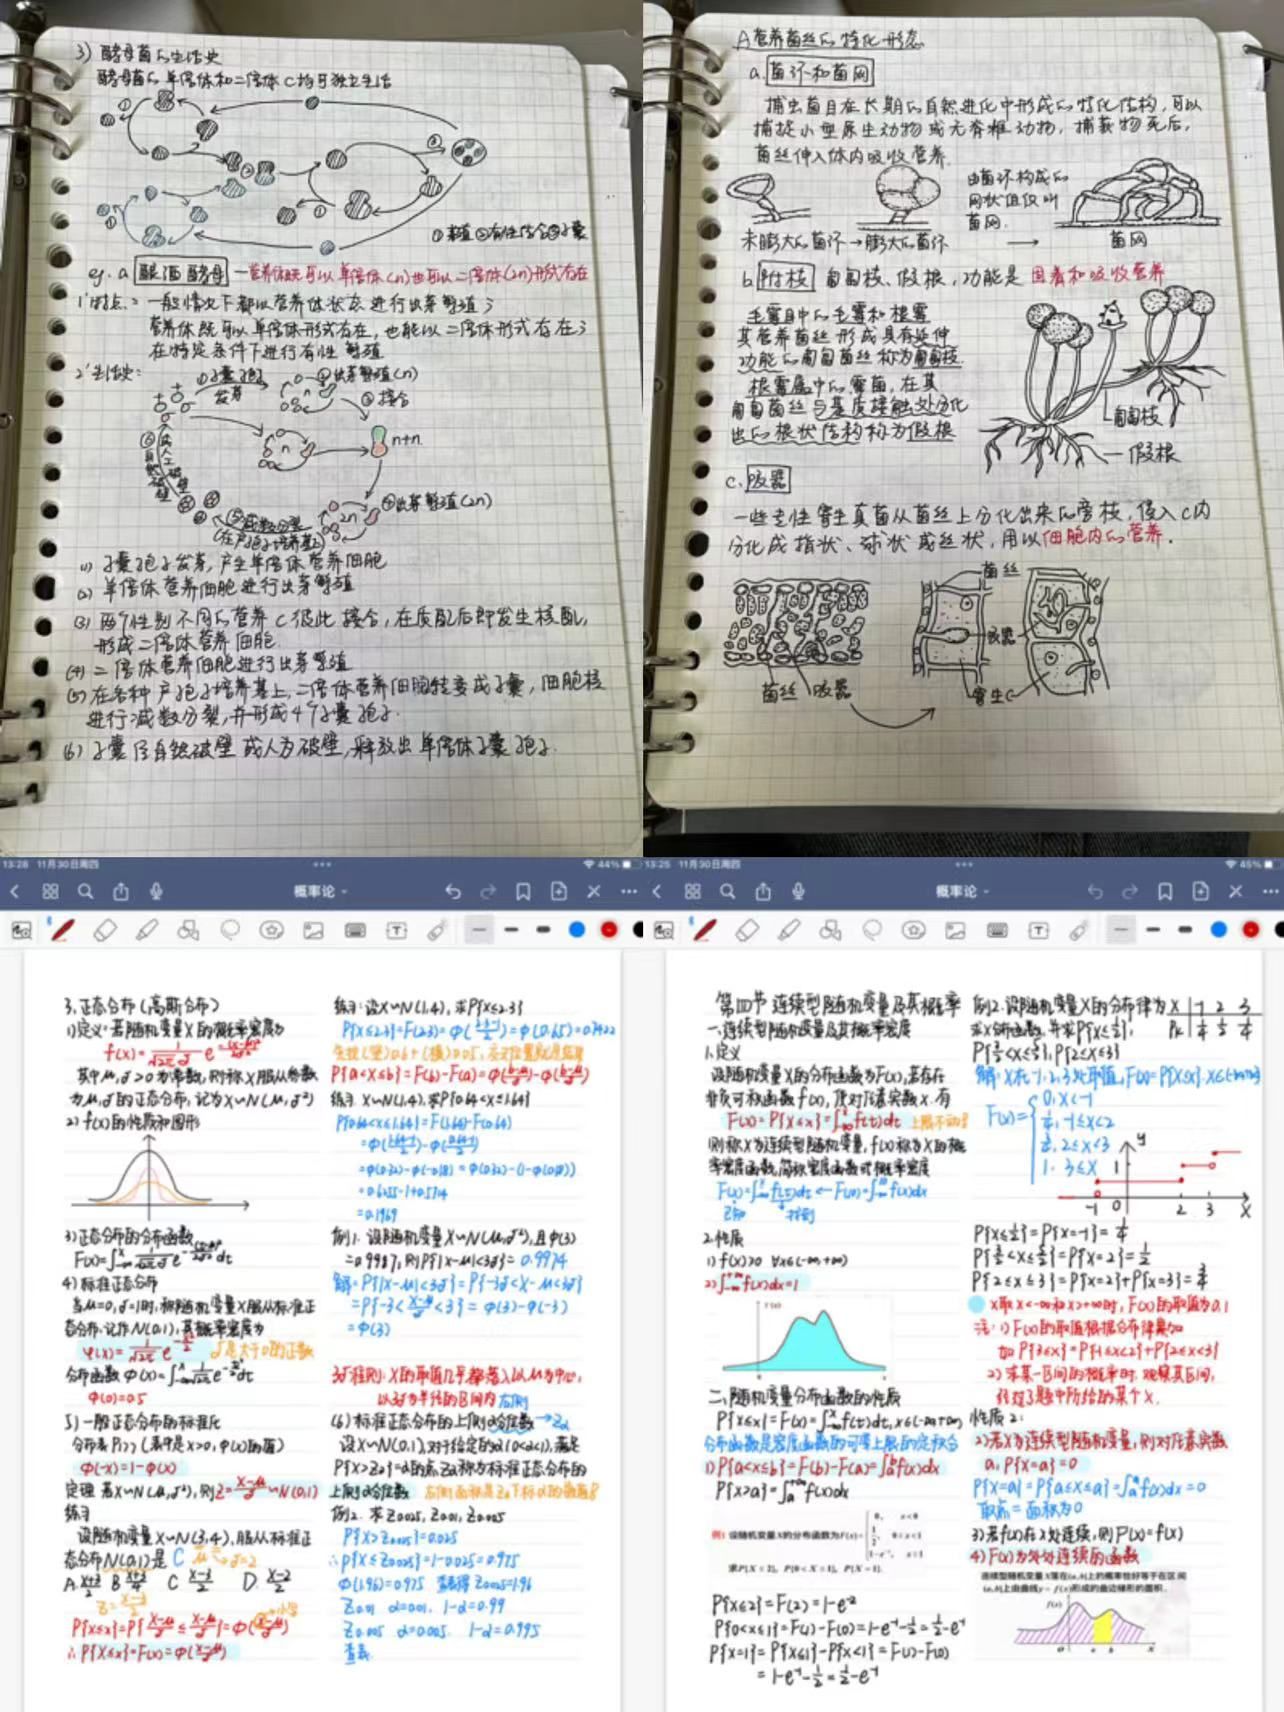 3) 酵母菌的生活史
酵母菌的单倍体和二倍体C均可独立生活
①出芽 ②有性结合 ③子囊
eg. a 酿酒酵母 —营养体既可以单倍体(n)也可以二倍体(2n)形式存在
1'特点: 一般情况下都以营养体状态进行出芽繁殖;
营养体既可以单倍体形式存在, 也能以二倍体形式存在;
在特定条件下进行有性繁殖
2'生活史:
①子囊孢子
发芽
②出芽繁殖(n)
③接合
n+n
④出芽繁殖(2n)
2n
⑤减数分裂
(在产孢子培养基上)
(1) 子囊孢子发芽, 产生单倍体营养细胞
(2) 单倍体营养细胞进行出芽繁殖
(3) 两个性别不同的营养C彼此接合, 在质配后即发生核配,
形成二倍体营养细胞
(4) 二倍体营养细胞进行出芽繁殖
(5) 在各种产孢子培养基上, 二倍体营养细胞转变成子囊, 细胞核
进行减数分裂, 并形成4个子囊孢子.
(6) 子囊经自然破壁或人为破壁, 释放出单倍体子囊孢子.
A营养菌丝的特化形态
a. 菌环和菌网
捕虫菌目在长期的自然进化中形成的特化结构, 可以
捕捉小型原生动物或无脊椎动物, 捕获物死后,
菌丝伸入体内吸收营养.
由菌环构成的
网状组织叫
菌网.
未膨大的菌环→膨大的菌环
菌网
b. 附枝 匍匐枝、假根, 功能是 固着和吸收营养
毛霉目中的毛霉和根霉
其营养菌丝形成具有延伸
功能的匍匐菌丝称为匍匐枝.
根霉属中的霉菌, 在其
匍匐菌丝与基质接触处分化
出的根状结构称为假根
匍匐枝
假根
c. 吸器
一些专性寄生真菌从菌丝上分化出来的旁枝, 侵入C内
分化成指状、球状或丝状, 用以细胞内的营养.
菌丝
吸器
寄生C
菌丝 吸器
13:28 11月30日周四
44%
概率论
3.正态分布(高斯分布)
1)定义: 若随机变量X的概率密度为
f(x)=\frac{1}{\sqrt{2π}σ} e^{-\frac{(x-μ)²}{2σ²}}
其中μ,σ>0为常数, 则称X服从参数
为μ,σ的正态分布, 记为X~N(μ,σ²)
2) f(x)的性质和图形
3)正态分布的分布函数
F(x)=∫_{-∞}^{x} \frac{1}{\sqrt{2π}σ} e^{-\frac{(t-μ)²}{2σ²}}dt
4) 标准正态分布
当μ=0,σ=1时, 称随机变量X服从标准正
态分布, 记作N(0,1), 其概率密度为
φ(x)=\frac{1}{\sqrt{2π}} e^{-\frac{x²}{2}} σ是大于0的正数
分布函数 Φ(x)=∫_{-∞}^{x} \frac{1}{\sqrt{2π}} e^{-\frac{t²}{2}}dt
Φ(0)=0.5
5) 一般正态分布的标准化
分布表P177 (表中是x>0, Φ(x)的值)
Φ(-x)=1-Φ(x)
定理 若X~N(μ,σ²), 则Z=\frac{X-μ}{σ}~N(0,1)
练习
设随机变量X~N(3,4), 服从标准正
态分布N(0,1)是 C σ=2
A. \frac{x+3}{2} B \frac{x+3}{4} C \frac{x-3}{2} D. \frac{x-2}{2}
Z=\frac{x-3}{2}
P{X≤x}=P{\frac{X-μ}{σ}≤\frac{x-μ}{σ}}=Φ(\frac{x-μ}{σ})
∴P{X≤x}=F(x)=Φ(\frac{x-μ}{σ})
练习: 设X~N(1,4), 求P{X≤2.3}
P{X≤2.3}=F(2.3)=Φ(\frac{2.3-1}{2})=Φ(0.65)=0.7422
先找(竖)0.6+(横)0.05, 对应位置就是结果
P{a<X≤b}=F(b)-F(a)=Φ(\frac{b-μ}{σ})-Φ(\frac{a-μ}{σ})
练习. X~N(1,4), 求P{0.64<X≤1.64}
P{0.64<X≤1.64}=F(1.64)-F(0.64)
=Φ(\frac{1.64-1}{2})-Φ(\frac{0.64-1}{2})
=Φ(0.32)-Φ(-0.18)=Φ(0.32)-(1-Φ(0.18))
=0.6255-1+0.5714
=0.1969
例1. 设随机变量X~N(μ,σ²), 且Φ(3)
=0.9987, 则P{|X-μ|<3σ}=0.9974
解=P{|X-μ|<3σ}=P{-3σ<X-μ<3σ}
=P{-3<\frac{X-μ}{σ}<3}=Φ(3)-Φ(-3)
=Φ(3)
3σ准则: X的取值几乎都落入以μ为中心,
以3σ为半径的区间内 右侧
(6) 标准正态分布的上侧α分位数→Zα
设X~N(0,1), 对于给定的α(0<α<1), 满足
P{X>Zα}=α的点Zα称为标准正态分布的
上侧α分位数
例2. 求Z0.025, Z0.01, Z0.005
P{X>Z0.025}=0.025
∴P{X≤Z0.025}=1-0.025=0.975
Φ(1.96)=0.975 查表得Z0.025=1.96
Z0.01 α=0.01, 1-α=0.99
Z0.005 α=0.005. 1-α=0.995
查表
13:25 11月30日周四
45%
概率论
第四节 连续型随机变量及其概率
一.连续型随机变量及其概率密度
1.定义
设随机变量X的分布函数为F(x), 若存在
非负可积函数f(x), 使对任意实数x. 有
F(x)=P{X≤x}=∫_{-∞}^{x}f(t)dt
则称X为连续型随机变量, f(x)称为X的概
率密度函数, 简称密度函数或概率密度
F(x)=∫_{-∞}^{x}f(t)dt ← F(x)=∫_{-∞}^{x}f(x)dx
2.性质
1) f(x)≥0 ∀x∈(-∞,+∞)
2)∫_{-∞}^{+∞}f(x)dx=1
二.随机变量分布函数的性质
P{X≤x}=F(x)=∫_{-∞}^{x}f(t)dt, x∈(-∞,+∞)
分布函数是密度函数的可变上限的定积分
1)P{a<X≤b}=F(b)-F(a)=∫_{a}^{b}f(x)dx
P{X>a}=∫_{a}^{+∞}f(x)dx
例1 设随机变量X的分布函数为F(x)= 0, x<0
\frac{1}{2}, 0≤x<1
1-e^{-x}, x≥1
求P{X≤2}, P{0<X≤1}, P{X=1}.
P{X≤2}=F(2)=1-e^{-2}
P{0<X≤1}=F(1)-F(0)=1-e^{-1}-\frac{1}{2}=\frac{1}{2}-e^{-1}
P{X=1}=P{X≤1}-P{X<1}=F(1)-F(0)
=1-e^{-1}-\frac{1}{2}=\frac{1}{2}-e^{-1}
例2. 设随机变量X的分布律为 X -1 2 3
求X分布函数, 并求P{X≤\frac{1}{2}}, Pk \frac{1}{4} \frac{1}{2} \frac{1}{4}
P{\frac{3}{2}<X≤\frac{5}{2}}, P{2≤X≤3}
解: X在-1,2,3处取值, F(x)=P{X≤x}. x∈(-∞,+∞)
F(x)= 0, x<-1
\frac{1}{4}, -1≤x<2
\frac{3}{4}, 2≤x<3
1. 3≤x
y
1
-1 0 2 3 x
P{X≤\frac{1}{2}}=P{X=-1}=\frac{1}{4}
P{\frac{3}{2}<X≤\frac{5}{2}}=P{X=2}=\frac{1}{2}
P{2≤X≤3}=P{X=2}+P{X=3}=\frac{3}{4}
X取X<-∞和X>+∞时, F(x)的取值为0,1
注: 1) F(x)的取值根据分布律累加
2) 求某一区间的概率时, 观察其区间,
经过了题中所给的某个X.
性质2:
2)若X为连续型随机变量, 则对任意实数
a, P{X=a}=0
P{X=a}=P{a≤X≤a}=∫_{a}^{a}f(x)dx=0
取点=面积为0
3)若f(x)在x处连续, 则F'(x)=f(x)
4)F(x)为处处连续的函数
连续型随机变量X落在(a,b]上的概率恰好等于在区间
(a,b]上由曲线y=f(x)形成的曲边梯形的面积.
f(x)
O a b x